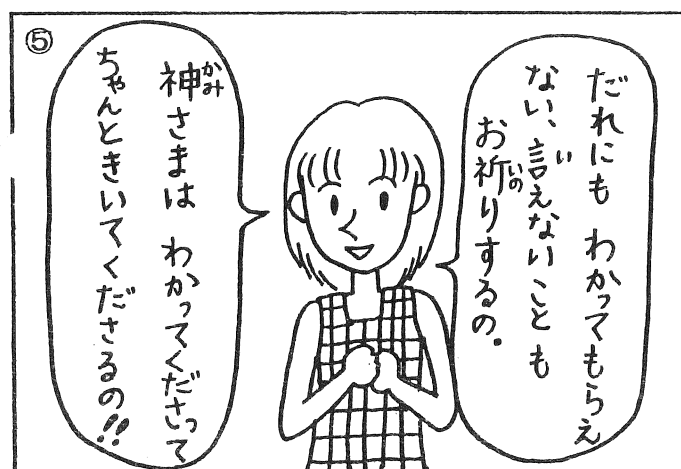 ⑤
だれにも わかってもらえ
ない、言えないことも
お祈りするの。
神さまは わかってくださって
ちゃんときいてくださるの!!